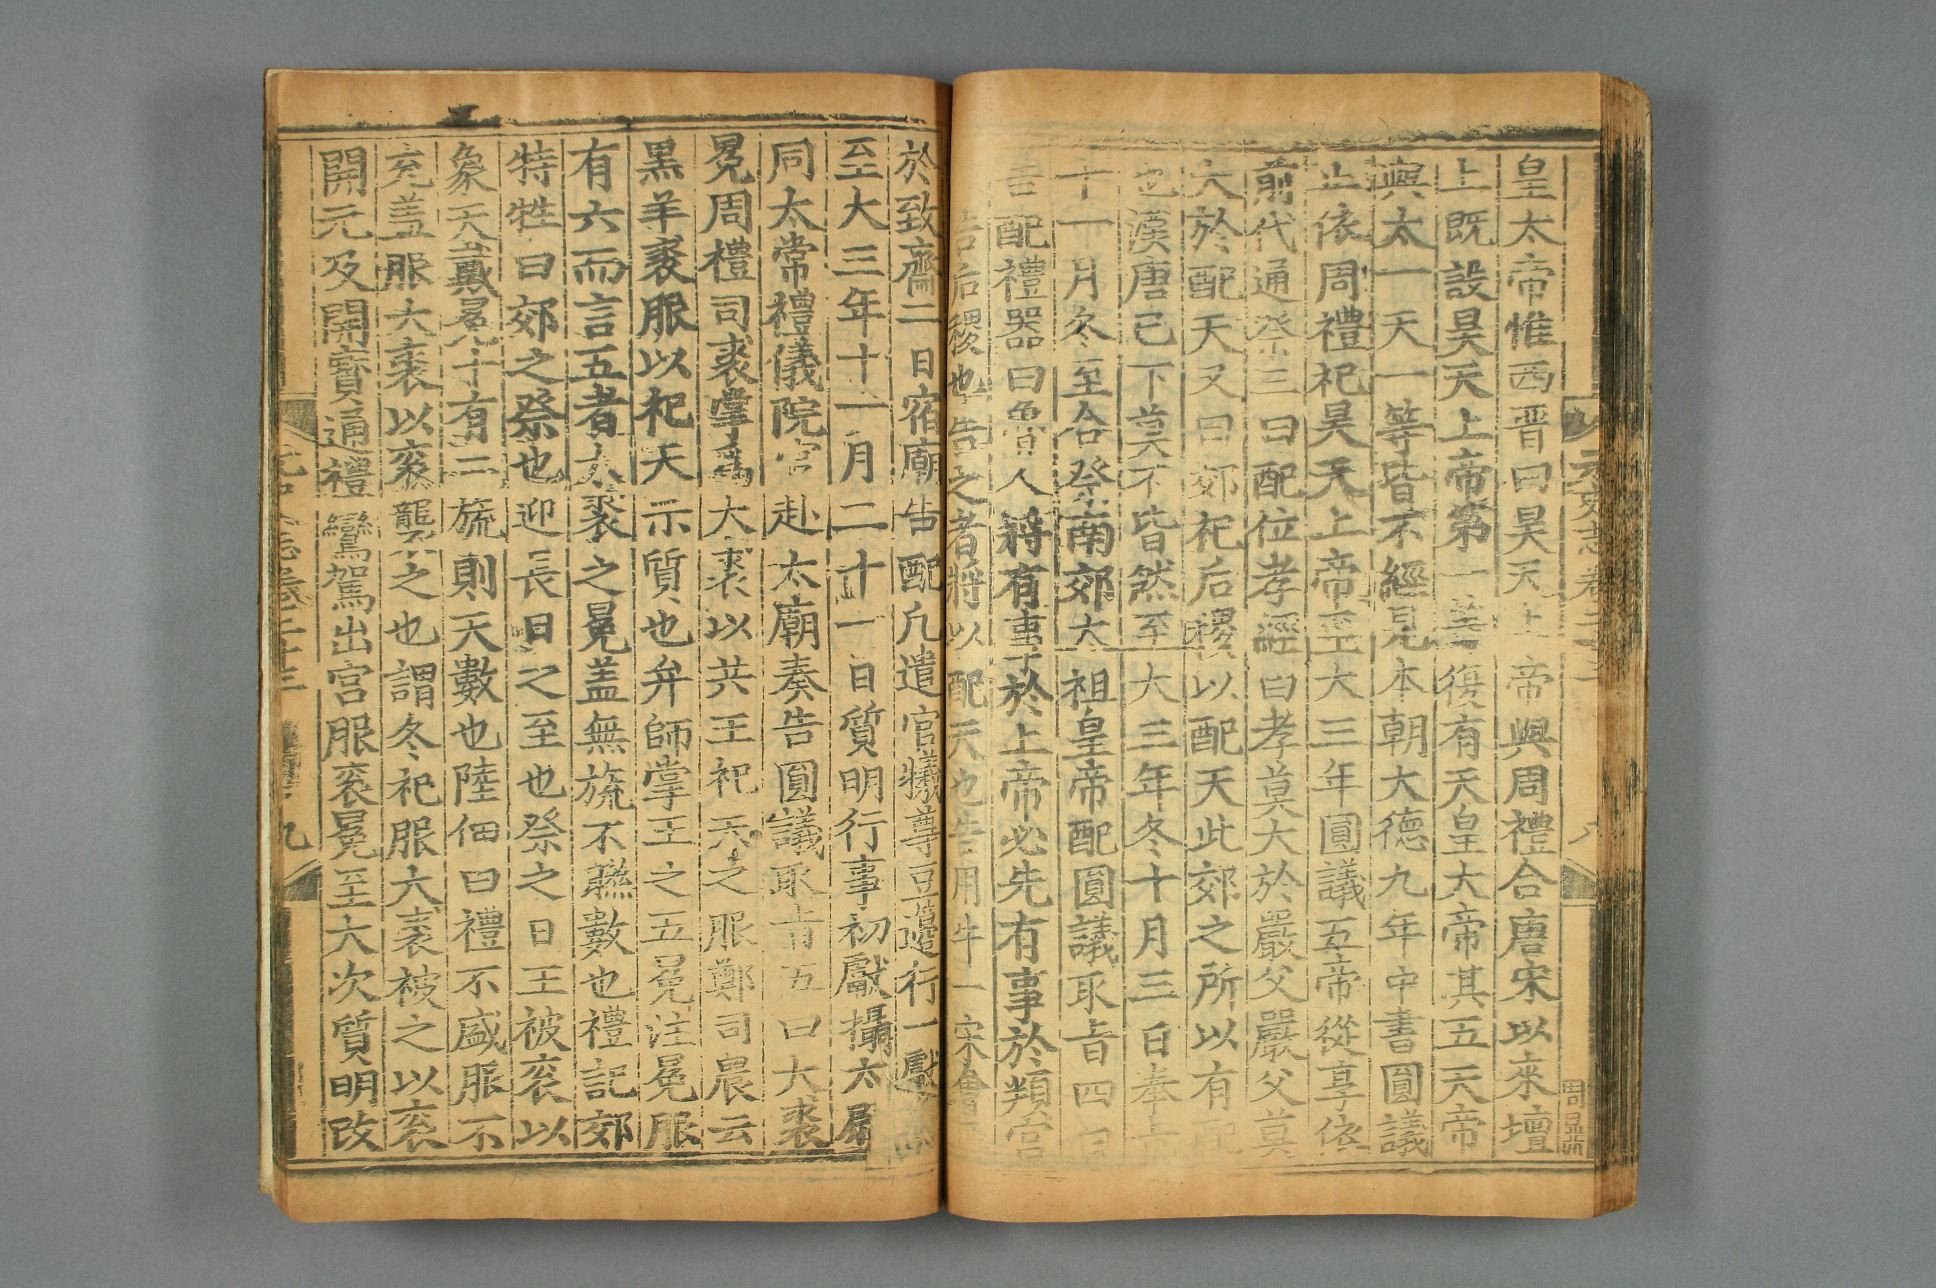 皇太帝惟西晋曰昊天上帝與周禮合唐宋以來壇
上既設昊天上帝第一等復有天皇大帝其五天帝
與太一天一等皆不經見本朝大德九年中書圓議
止依周禮祀昊天上帝至大三年圓議五帝從享依
前代通祭三曰配位孝經曰孝莫大於嚴父嚴父莫
大於配天又曰郊祀后稷以配天此郊之所以有配
也漢唐已下莫不皆然至大三年冬十月三日奉旨
十一月冬至合祭南郊太祖皇帝配圓議取旨四曰
告配禮器曰魯人將有事於上帝必先有事於頖宮
告后稷也告之者將以配天也告用牛一宋會
於致齋二日宿廟告配凡遣官犧尊豆籩行一獻
至大三年十一月二十一日質明行事初獻攝太尉
同太常禮儀院官赴太廟奏告圓議取旨五曰大裘
冕周禮司裘掌爲大裘以共王祀天之服鄭司農云
黑羊裘服以祀天示質也弁師掌王之五冕注冕服
有六而言五者大裘之冕盖無旒不聯數也禮記郊
特牲曰郊之祭也迎長日之至也祭之日王被衮以
象天戴冕十有二旒則天數也陸佃曰禮不盛服不
充盖服大裘以衮襲之也謂冬祀服大裘被之以衮
開元及開寶通禮鸞駕出宮服衮冕至大次質明改